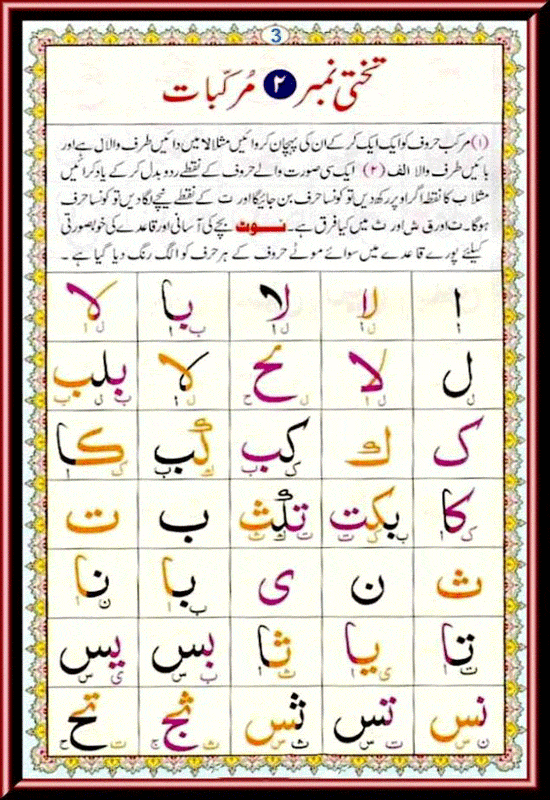 3
تختی نمبر ۲ مُرکّبات
(۱) مرکب حروف کو ایک ایک کر کے ان کی پہچان کروائیں مثلا لا میں دائیں طرف والا ل ہے اور
بائیں طرف والا الف (۲) ایک سی صورت والے حروف کے نقطے ردو بدل کر کے یاد کرائیں
مثلا ب کا نقطہ اگر اوپر رکھ دیں تو کونسا حرف بن جائیگا اور ت کے نقطے نیچے لگا دیں تو کونسا حرف
ہوگا۔ ت اور ق ش اور ث میں کیا فرق ہے۔ نوٹ بچے کی آسانی اور قاعدے کی خوبصورتی
کیلئے پورے قاعدے میں سوائے موٹے حروف کے ہر حرف کو الگ رنگ دیا گیا ہے۔
ا لا لا با لا
ا ل ا ل ا ب ا ل ا
ل لا لح لا بلب
ل ل ا ل ح ل ا ب ل ب
ک ك كب كب كا
ک ك ک ب ك ب ک ا
کا بکت تلكث ب ت
ک ا ب ک ت ت ل ك ث
ث ن ی با نا
ب ا ن ا
تا یا ثا بس یس
ت ا ی ا ث ا ب س ی س
نس تس ثس ثج تح
ن س ت س ث س ث ج ت ح